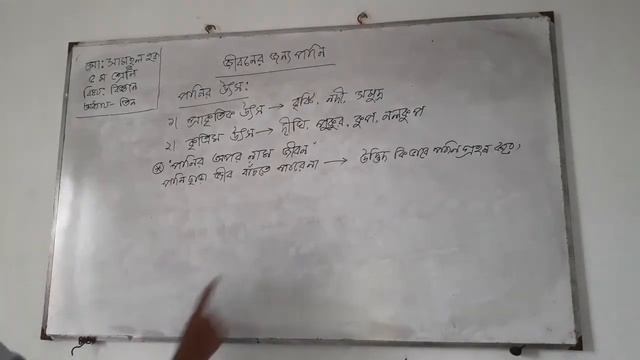 মো: আসাদুল হক
৫ম শ্রেণি
বিষয়: বিজ্ঞান
অধ্যায়- তিন
জীবনের জন্য পানি
পানির উৎস:
১) প্রাকৃতিক উৎস → বৃষ্টি, নদী, সমুদ্র
২) কৃত্রিম উৎস → দীঘি, পুকুর, কূপ, নলকূপ
"পানির অপর নাম জীবন"
পানি ছাড়া জীব বাঁচতে পারেনা → উদ্ভিদ কিভাবে পানি গ্রহন করে,